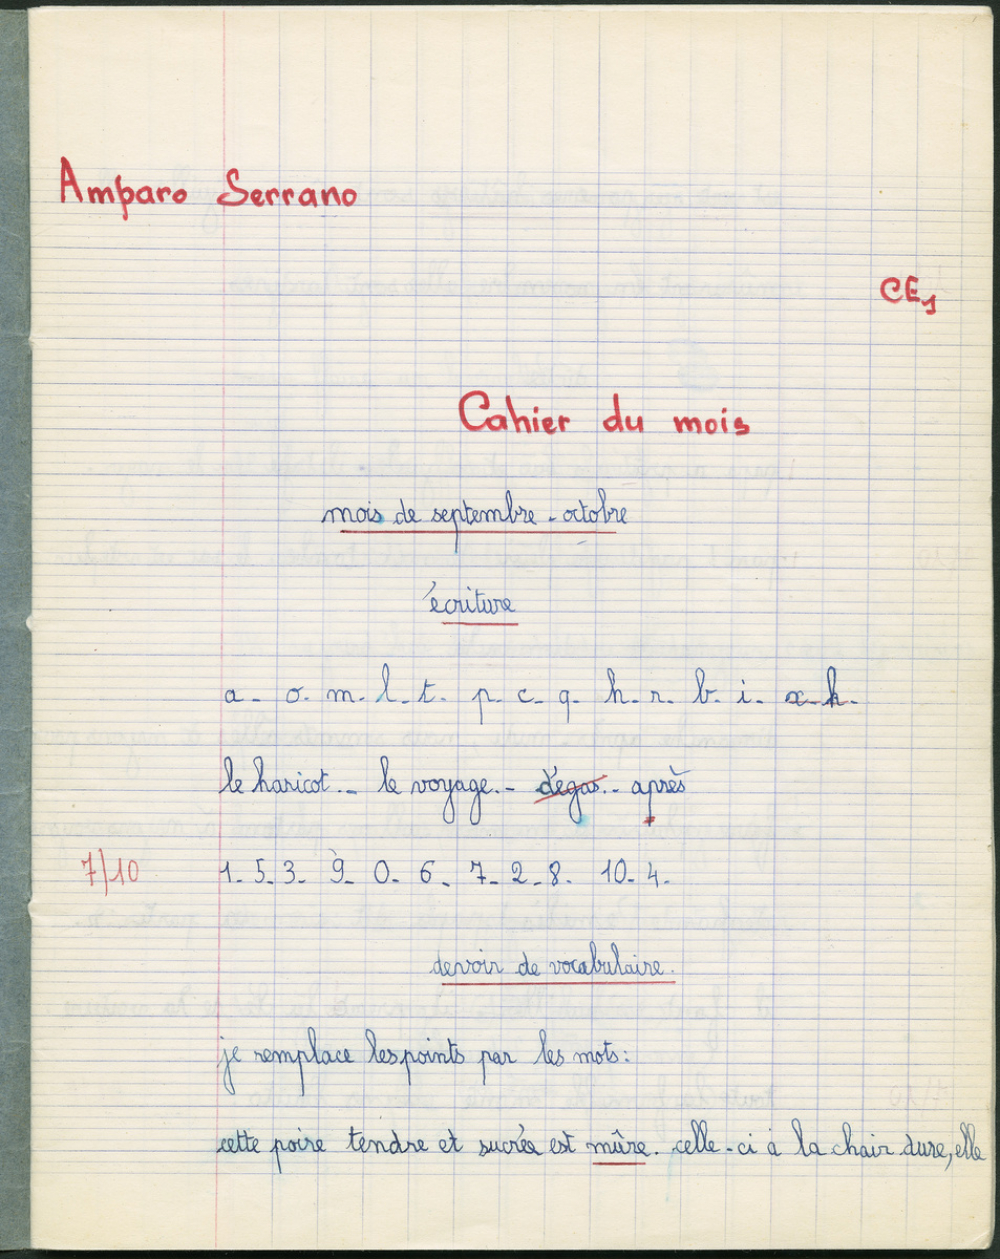 Amparo Serrano
CE1
Cahier du mois
mois de septembre - octobre
écriture
a - o - m - l - t - p - c - q - h - r - b - i - x - k -
le haricot. - le voyage. - dégas. - après
7/10 1 - 5 - 3 - 9 - 0 - 6 - 7 - 2 - 8 - 10 - 4 -
devoir de vocabulaire.
je remplace les points par les mots :
cette poire tendre et sucrée est mûre. celle-ci à la chair dure, elle